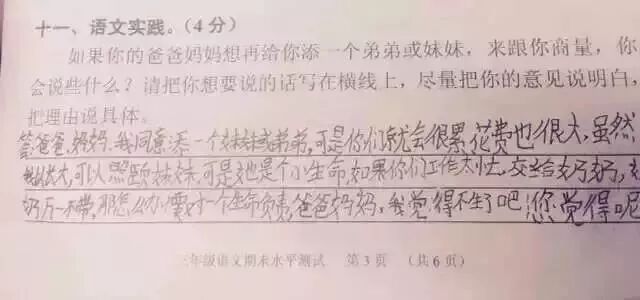 十一、语文实践。(4分)
如果你的爸爸妈妈想再给你添一个弟弟或妹妹,来跟你商量,你
会说些什么?请把你想要说的话写在横线上,尽量把你的意见说明白,
把理由说具体。
答爸爸、妈妈,我同意添一个妹妹或弟弟,可是你们就会很累,花费也很大,虽然
我长大,可以照顾妹妹,可是她是个小生命,如果你们工作太忙,交给奶奶,
奶万一不带,那怎么办,要对一个生命负责,爸爸妈妈,我觉得不生了吧!您觉得呢
三年级语文期末水平测试 第3页 (共6页)